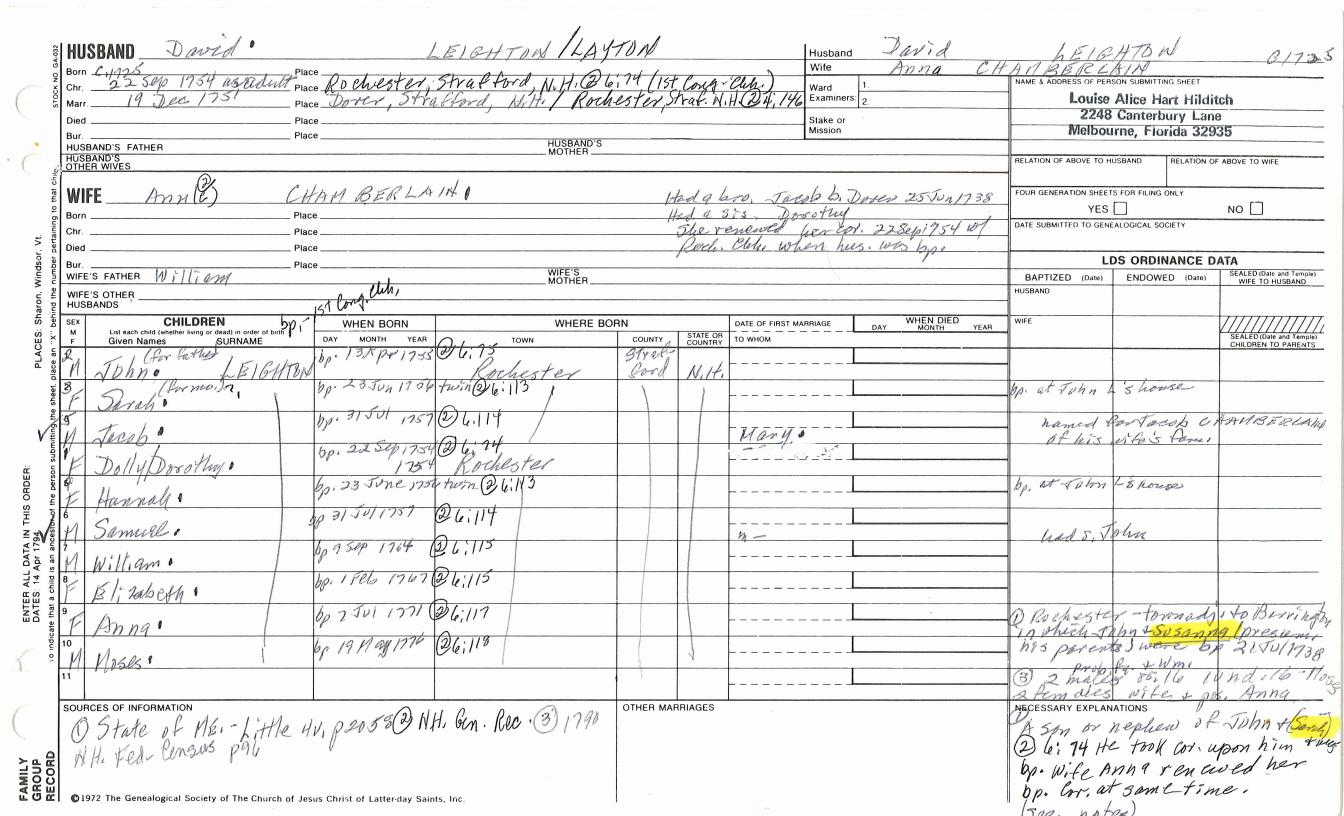 HUSBAND David LEIGHTON / LAYTON
Born C1725 Place
Chr. 22 Sep 1754 as adult Place Rochester, Strafford, N.H. ② 6:74 (1st Cong. Chh.)
Marr. 19 Dec 1751 Place Dover, Strafford, N.H. / Rochester, Straf. N.H. ② 4,146
Died Place
Bur. Place
HUSBAND'S FATHER HUSBAND'S MOTHER
HUSBAND'S OTHER WIVES
Husband David LEIGHTON C1725
Wife Anna CHAMBERLAIN
Ward Examiners 1. 2.
Stake or Mission
NAME & ADDRESS OF PERSON SUBMITTING SHEET
Louise Alice Hart Hilditch
2248 Canterbury Lane
Melbourne, Florida 32935
RELATION OF ABOVE TO HUSBAND RELATION OF ABOVE TO WIFE
FOUR GENERATION SHEETS FOR FILING ONLY
YES NO
DATE SUBMITTED TO GENEALOGICAL SOCIETY
WIFE Ann CHAMBERLAIN
Had a bro. Jacob b. Dover 25 Jun 1738
Had a sis. Dorothy
She renewed her cov. 22 Sep 1754 w/
Roch. Chh. when hus. was bp.
Born Place
Chr. Place
Died Place
Bur. Place
WIFE'S FATHER William WIFE'S MOTHER
WIFE'S OTHER HUSBANDS
bp. - 1st Cong. Chh.
LDS ORDINANCE DATA
BAPTIZED (Date) ENDOWED (Date) SEALED (Date and Temple) WIFE TO HUSBAND
HUSBAND
WIFE
SEALED (Date and Temple) CHILDREN TO PARENTS
SEX M F CHILDREN List each child (whether living or dead) in order of birth Given Names SURNAME
WHEN BORN DAY MONTH YEAR
WHERE BORN TOWN COUNTY STATE OR COUNTRY
DATE OF FIRST MARRIAGE TO WHOM
WHEN DIED DAY MONTH YEAR
2 M John (for father) LEIGHTON bp. 13 Apr 1755 ② 6:75 Rochester Strafford N.H.
3 F Sarah (for mo.) bp. 23 Jun 1756 twin ② 6:113 bp. at John L's house
5 M Jacob bp. 31 Jul 1757 ② 6:114 Mary named for Jacob CHAMBERLAIN of his wife's fam.
1 F Dolly/Dorothy bp. 22 Sep 1754 1754 ② 6:74 Rochester
4 F Hannah bp. 23 June 1756 twin ② 6:113 bp. at John L's house
6 M Samuel bp 31 Jul 1757 ② 6:114 had s. John
7 M William bp 9 Sep 1764 ② 6:115
8 F Elizabeth bp. 1 Feb 1767 ② 6:115
9 F Anna bp 7 Jul 1771 ② 6:117
10 M Moses bp 19 May 1776 ② 6:118
11
① Rochester - to Barrington
in which John + Susanna (presume
his parents) were bp 21 Jul 1738
prob. + Wm.
③ 2 males ov. 16 1 und. 16 - Moses
2 females wife + Anna
SOURCES OF INFORMATION
① State of ME. - Little 4V, p2058 ② N.H. Gen. Rec. ③ 1790
N.H. Fed. Census p96
OTHER MARRIAGES
NECESSARY EXPLANATIONS
① A son or nephew of John + (Sarah)
② 6:74 He took cov. upon him + was
bp. Wife Anna renewed her
bp. cov. at same time.
(see notes)
©1972 The Genealogical Society of The Church of Jesus Christ of Latter-day Saints, Inc.
STOCK NO. GA-032
PLACES: Sharon, Windsor, Vt.
ENTER ALL DATA IN THIS ORDER:
DATES: 14 Apr 1794
To indicate that a child is an ancestor of the person submitting the sheet, place an "X" behind the number pertaining to that child.
FAMILY GROUP RECORD